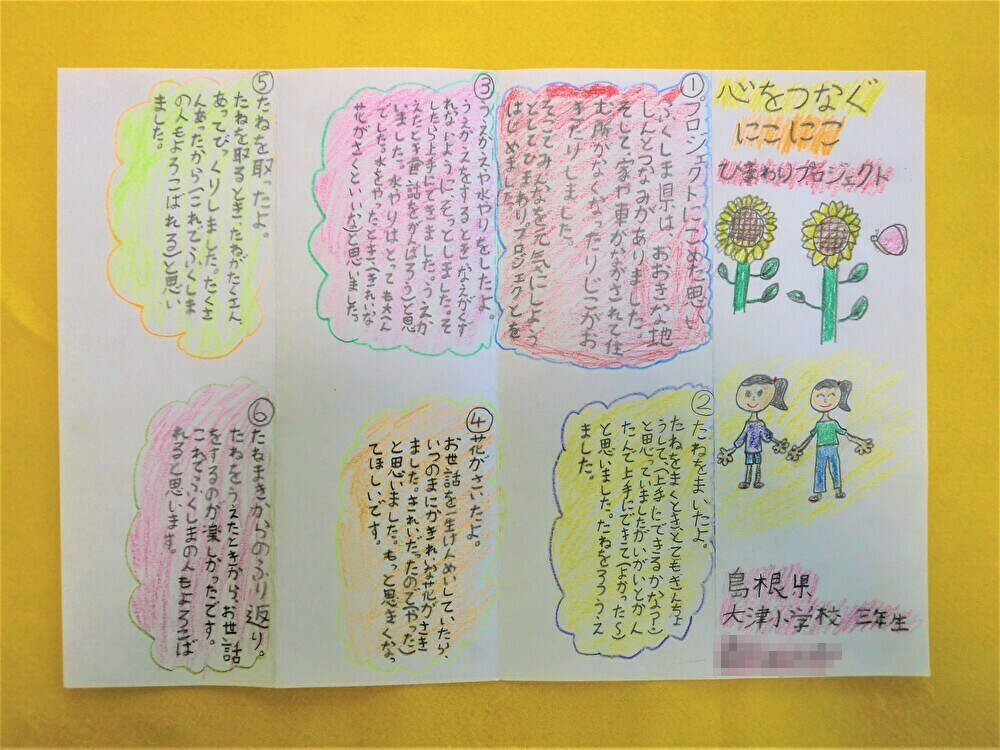 心をつなぐ
にこにこ
ひまわりプロジェクト
島根県
大津小学校 三年生
①プロジェクトにこめた思い。
ふくしま県は、おおきな地
しんとつなみがありました。
そして、家や車がながされて住
む所がなくなったりじこがお
きたりしました。
そこでみんなを元気にしよう
としてひまわりプロジェクトを
はじめました。
②たねをまいたよ。
たねをまくときとてもきんちょ
うして、(上手にできるかなあ?)
と思っていましたがいがいとかん
たんで上手にできて(よかった~)
と思いました。たねをうえ
ました。
③うえかえや水やりをしたよ。
うえかえをするとき、なえがくず
れないようにそっとしました。そ
したら上手にできました。うえか
えたとき(世話をがんばろう)と思
いました。水やりはとっても大へん
でした。水をやったとき、(きれいな
花がさくといいな)と思いました。
④花がさいたよ。
お世話を一生けんめいしていたら、
いつのまにかきれいな花がさき
ました。きれいだったので(やった)
と思いました。もっと大きくなっ
てほしいです。
⑤たねを取ったよ。
たねを取るとき、たねがたくさん
あってびっくりしました。たくさ
んあったから(これでふくしま
の人もよろこばれる)と思い
ました。
⑥たねまきからのふり返り。
たねをうえたときから、お世話
をするのが楽しかったです。
これでふくしまの人もよろこば
れると思います。